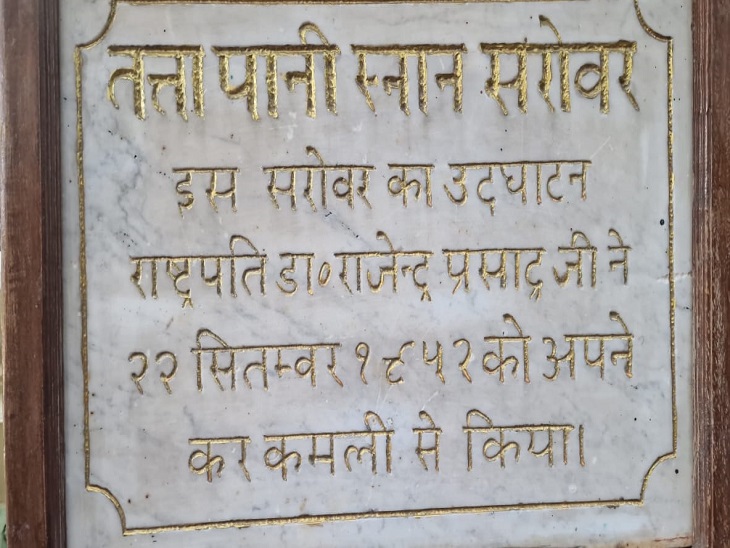 तत्ता पानी स्नान सरोवर
इस सरोवर का उद्घाटन
राष्ट्रपति डा० राजेन्द्र प्रसाद्र जी ने
२२ सितम्बर १९५२ को अपने
कर कमलों से किया।